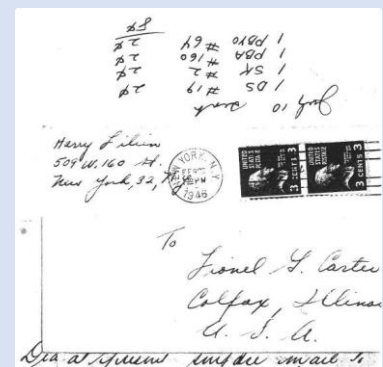 July 10
1 DS #19 2¢
1 SK #2 2¢
1 PBA #160 2¢
1 PBYO #64 2¢
8¢
Harry
509 W. 160 St.
New York, 32, N.Y.
NEW YORK, N.Y.
FEB
PM
1946
UNITED STATES POSTAGE
3 CENTS 3
UNITED STATES POSTAGE
3 CENTS 3
To
Lionel L. Carter
Colfax, Illino
U. S. A.
at present mail to